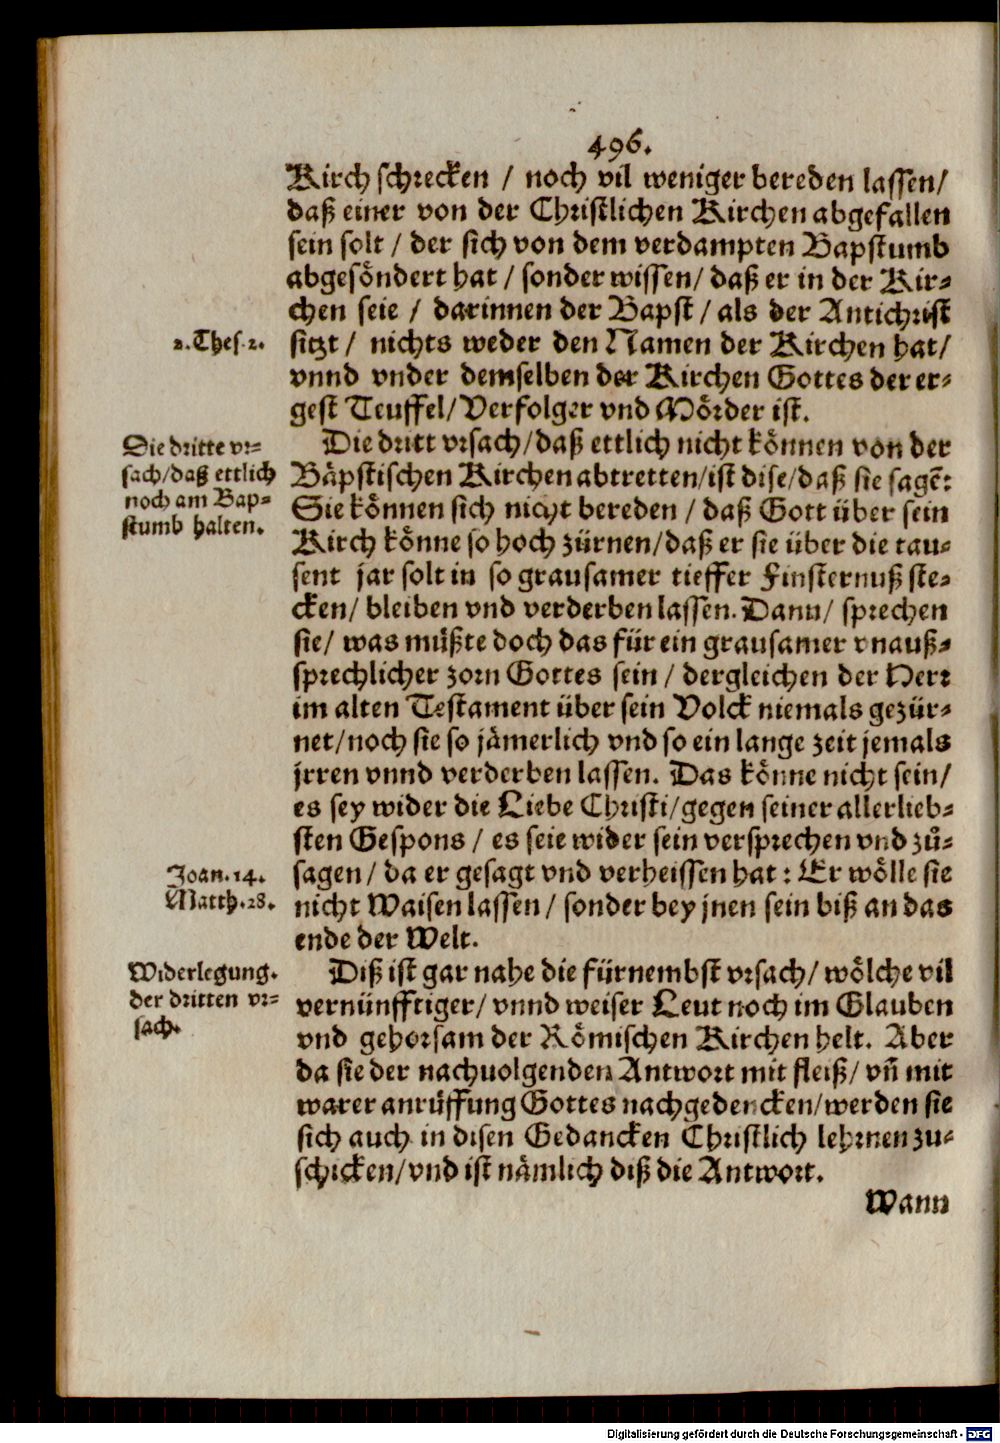 496.
Kirch schrecken / noch vil weniger bereden lassen/
daß einer von der Christlichen Kirchen abgefallen
sein solt / der sich von dem verdampten Bapstumb
abgesöndert hat / sonder wissen/ daß er in der Kir-
chen seie / darinnen der Bapst / als der Antichrist
2.Thes.2.
sitzt / nichts weder den Namen der Kirchen hat/
vnnd vnder demselben der Kirchen Gottes der er-
gest Teuffel/ Verfolger vnd Mörder ist.
Die dritte vr-
sach/daß ettlich
noch am Bap-
stumb halten.
Die dritt vrsach/daß ettlich nicht können von der
Bäpstischen Kirchen abtretten/ist dise/daß sie sagẽ:
Sie können sich nicht bereden / daß Gott über sein
Kirch könne so hoch zürnen/daß er sie über die tau-
sent jar solt in so grausamer tieffer Finsternuß ste-
cken/ bleiben vnd verderben lassen. Dann/ sprechen
sie/ was müßte doch das für ein grausamer vnauß-
sprechlicher zorn Gottes sein / dergleichen der Herr
im alten Testament über sein Volck niemals gezür-
net/noch sie so jämerlich vnd so ein lange zeit jemals
jrren vnnd verderben lassen. Das könne nicht sein/
es sey wider die Liebe Christi/gegen seiner allerlieb-
sten Gespons / es seie wider sein versprechen vnd zů-
Joan.14.
Matth.28.
sagen / da er gesagt vnd verheissen hat : Er wölle sie
nicht Waisen lassen / sonder bey jnen sein biß an das
ende der Welt.
Widerlegung.
der dritten vr-
sach.
Diß ist gar nahe die fürnembst vrsach/ wölche vil
vernünfftiger/ vnnd weiser Leut noch im Glauben
vnd gehorsam der Römischen Kirchen helt. Aber
da sie der nachuolgenden Antwort mit fleiß/ vñ mit
warer anrüffung Gottes nachgedencken/werden sie
sich auch in disen Gedancken Christlich lehrnen zu-
schicken/vnd ist nämlich diß die Antwort.
Wann
Digitalisierung gefördert durch die Deutsche Forschungsgemeinschaft - DFG